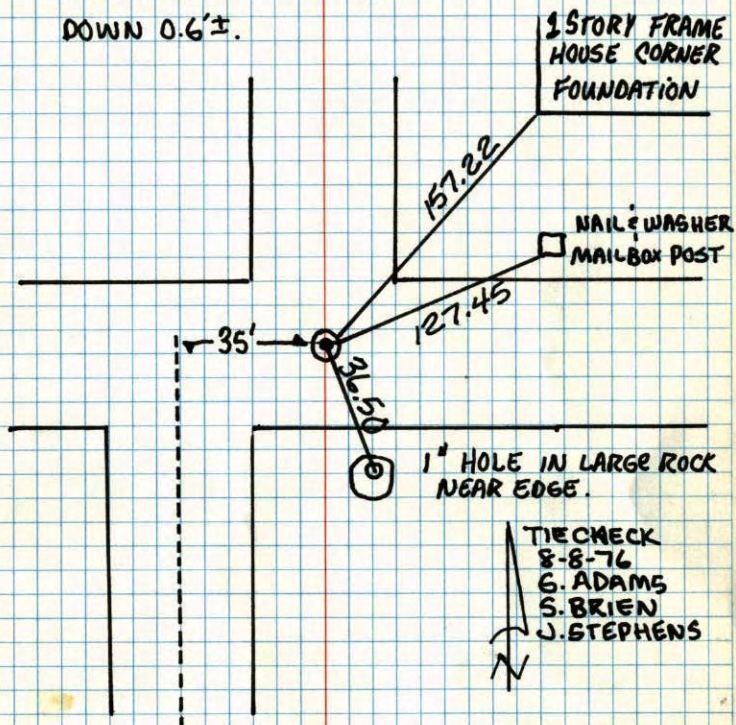 DOWN 0.6'±.
1 STORY FRAME
HOUSE CORNER
FOUNDATION
157.22
NAIL & WASHER
MAILBOX POST
127.45
35'
36.50
1" HOLE IN LARGE ROCK
NEAR EDGE.
TIE CHECK
8-8-76
G. ADAMS
S. BRIEN
J. STEPHENS
N